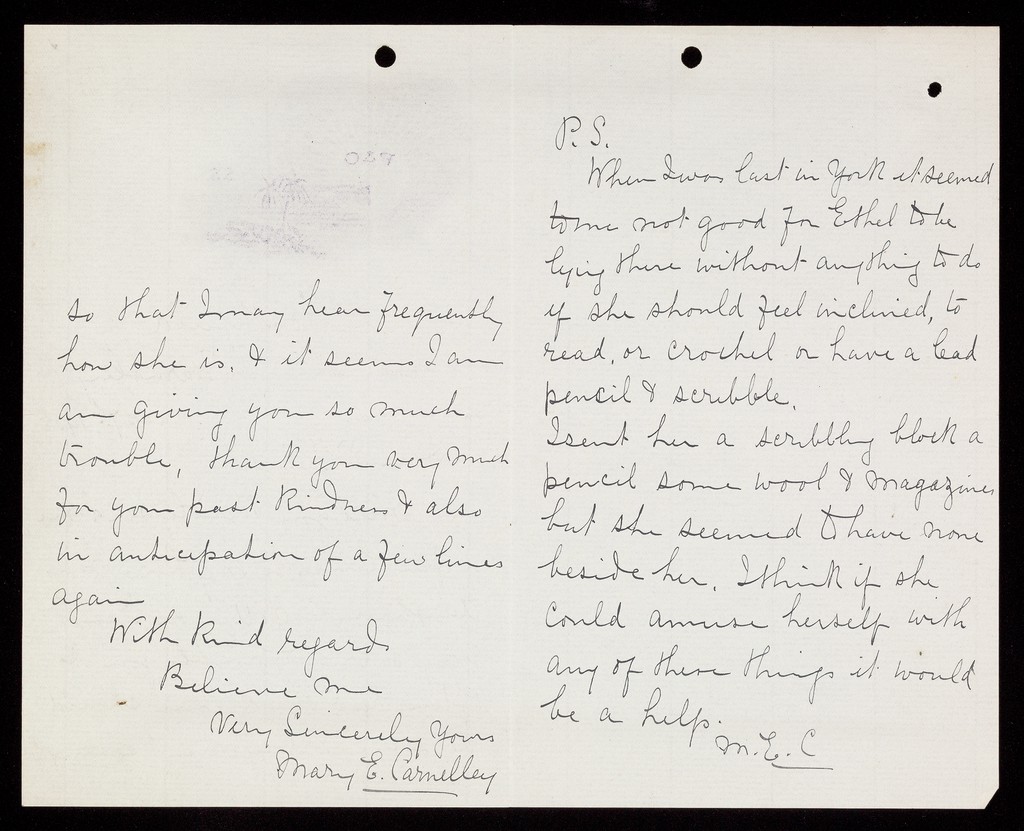 so that I may hear frequently
how she is, & it seems I am
am giving you so much
trouble, thank you very much
for your past kindness & also
in anticipation of a few lines
again
With kind regards
Believe me
Very Sincerely Yours
Mary E. Carnelley
P.S.
When I was last in York it seemed
to me not good for Ethel to be
lying there without anything to do
if she should feel inclined, to
read, or crochet or have a lead
pencil & scribble.
I sent her a scribbling block a
pencil some wool & magazines
but she seemed to have none
beside her. I think if she
could amuse herself with
any of these things it would
be a help.
M. E. C